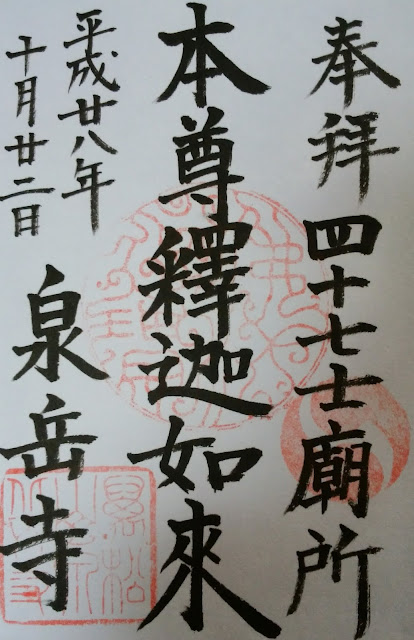 奉拝 四十七士廟所
本尊釋迦如來
平成廿八年
十月廿二日
泉岳寺